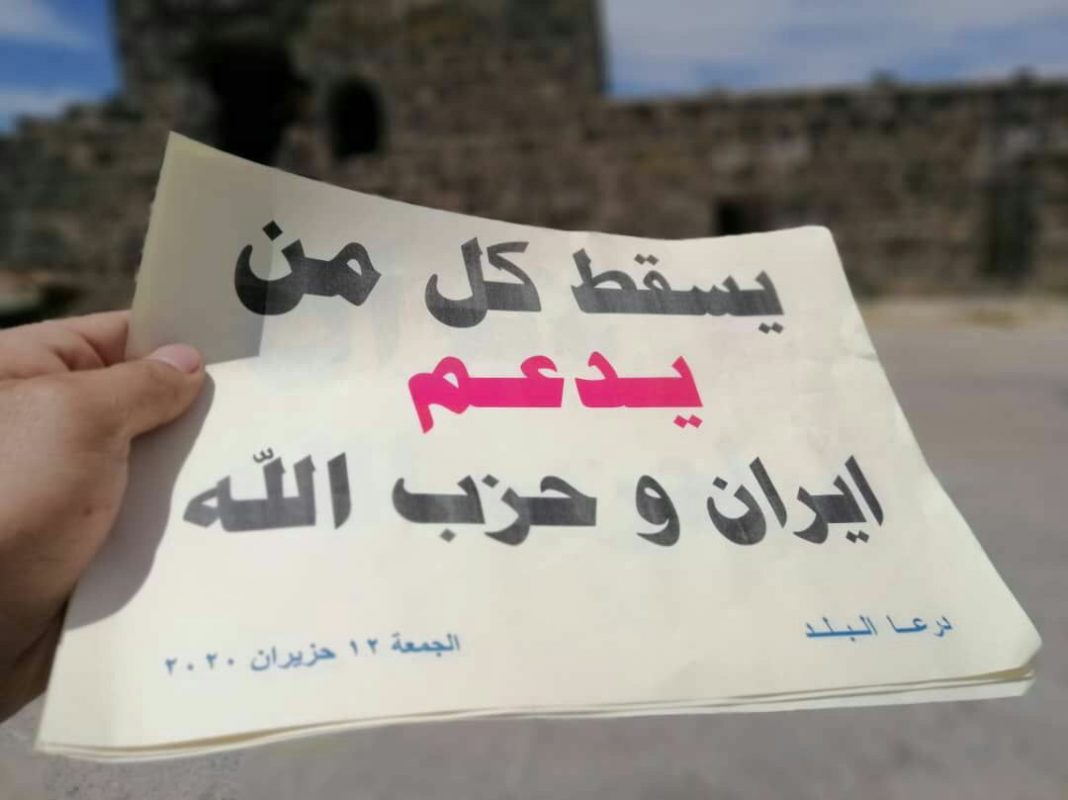 يسقط كل من
يدعم
ايران و حزب الله
درعا البلد
الجمعة ١٢ حزيران ٢٠٢٠